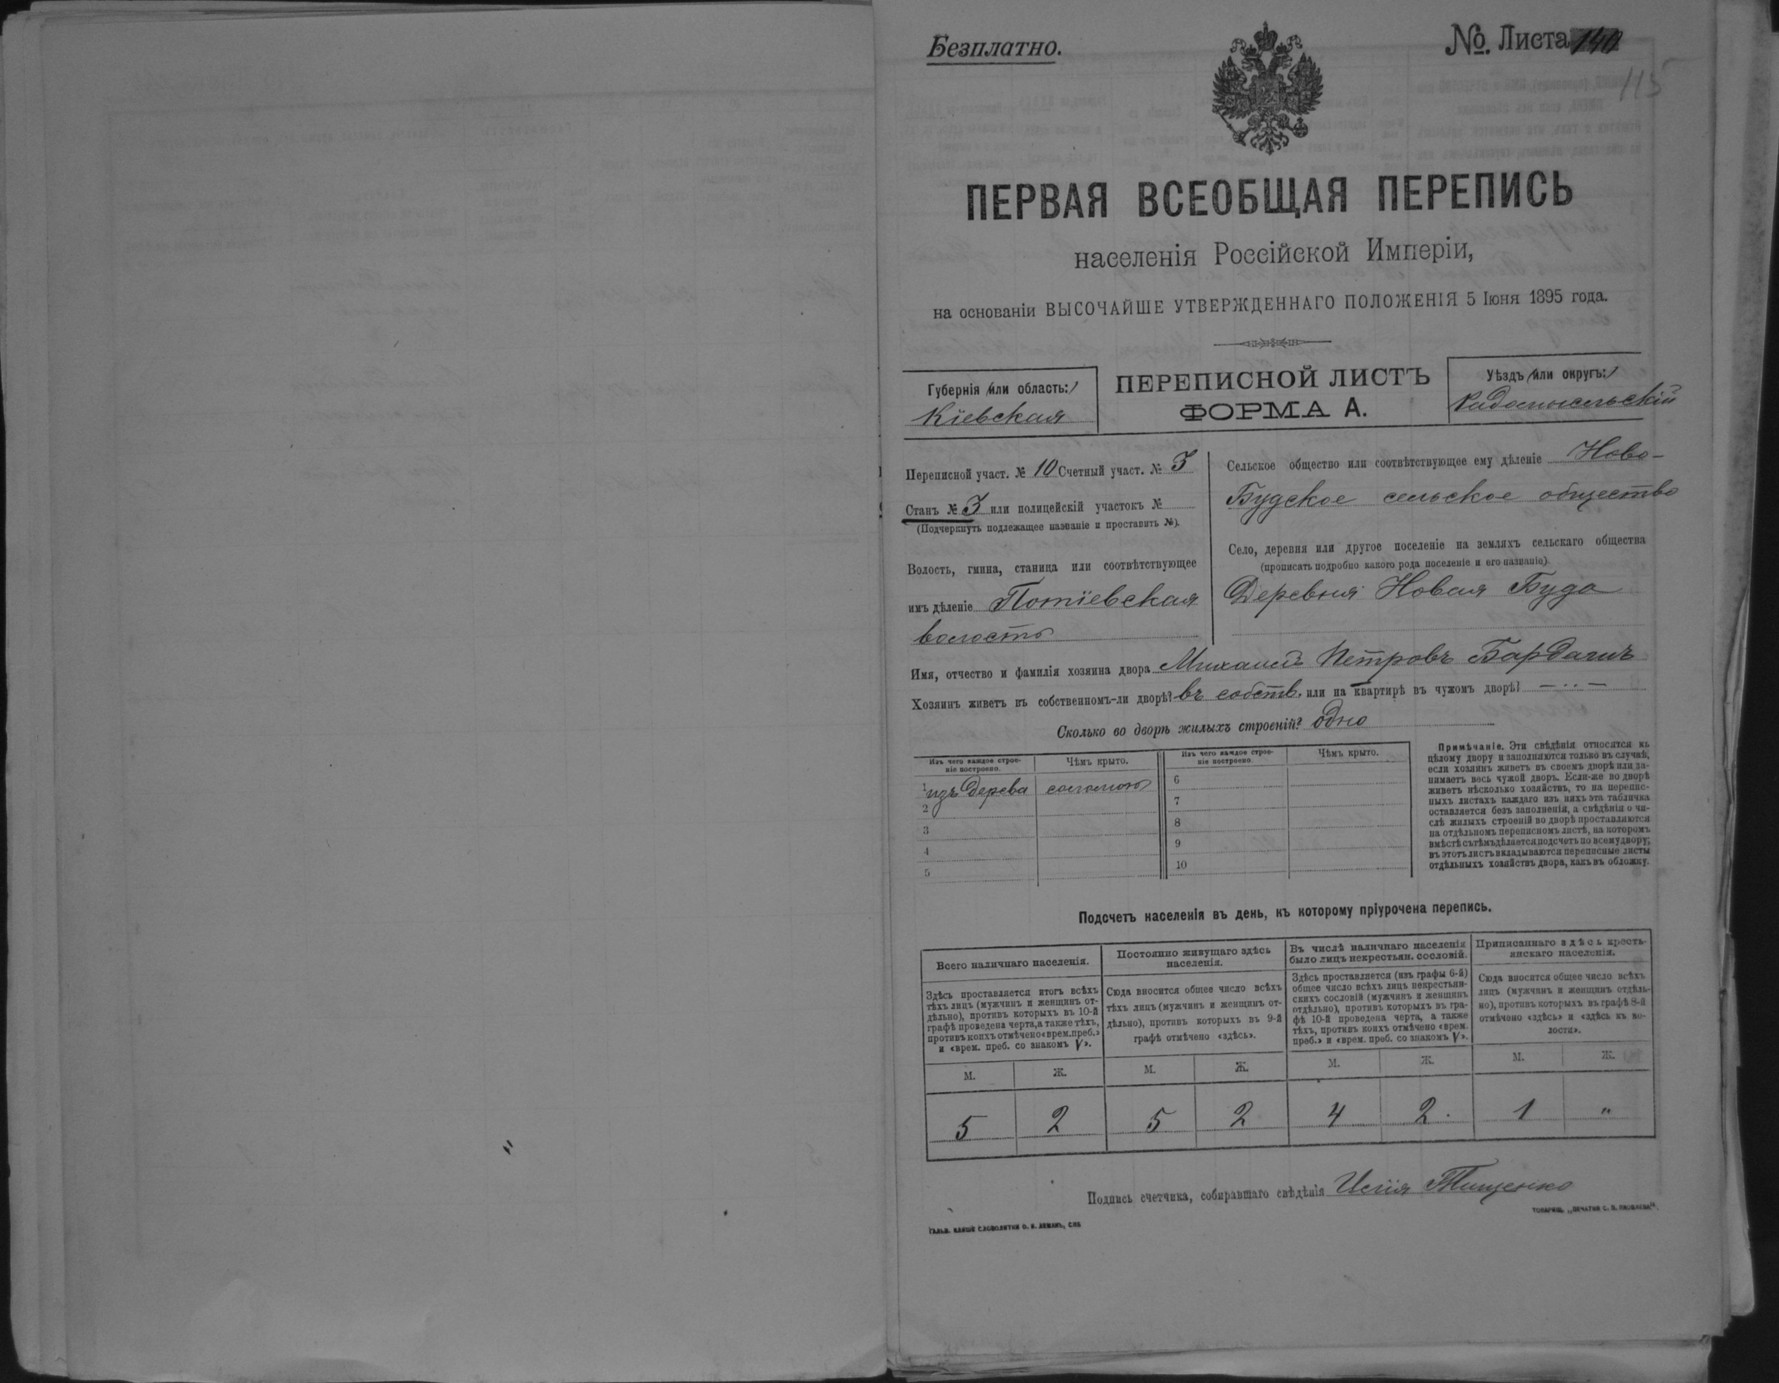 Безплатно.
№. Листа 140
115
ПЕРВАЯ ВСЕОБЩАЯ ПЕРЕПИСЬ
населенія Россійской Имперіи,
на основаніи ВЫСОЧАЙШЕ УТВЕРЖДЕННАГО ПОЛОЖЕНІЯ 5 Іюня 1895 года.
Губернія (или область:)
Кіевская
ПЕРЕПИСНОЙ ЛИСТЪ
ФОРМА А.
Уѣздъ (или округъ:)
Радомысльскій
Переписной участ. № 10 Счетный участ. № 3
Станъ № 3 или полицейскій участокъ №
(Подчеркнуть подлежащее названіе и проставить №).
Волость, гмина, станица или соотвѣтствующее
имъ дѣленіе Потіевская
волость
Сельское общество или соотвѣтствующее ему дѣленіе Ново-
Будское сельское общество
Село, деревня или другое поселеніе на земляхъ сельскаго общества
(прописать подробно какого рода поселеніе и его названіе)
Деревня Новая Буда
Имя, отчество и фамилія хозяина двора Михаилъ Петровъ Бардашъ
Хозяинъ живетъ въ собственномъ-ли дворѣ? въ собств. или на квартирѣ въ чужомъ дворѣ? —..—
Сколько во дворѣ жилыхъ строеній? одно
Изъ чего каждое строе-
ніе построено.
Чѣмъ крыто.
Изъ чего каждое строе-
ніе построено.
Чѣмъ крыто.
1 изъ дерева соломою
2
3
4
5
6
7
8
9
10
Примѣчаніе. Эти свѣдѣнія относятся къ
цѣлому двору и заполняются только въ случаѣ,
если хозяинъ живетъ въ своемъ дворѣ или за-
нимаетъ весь чужой дворъ. Если-же во дворѣ
живетъ нѣсколько хозяйствъ, то на перепис-
ныхъ листахъ каждаго изъ нихъ эта табличка
оставляется безъ заполненія, а свѣдѣнія о чи-
слѣ жилыхъ строеній во дворѣ проставляются
на отдѣльномъ переписномъ листѣ, на которомъ
вмѣстѣ съ тѣмъ дѣлается подсчетъ по всему двору;
въ этотъ листъ вкладываются переписные листы
отдѣльныхъ хозяйствъ двора, какъ въ обложку.
Подсчетъ населенія въ день, къ которому пріурочена перепись.
Всего наличнаго населенія.
Здѣсь проставляется итогъ всѣхъ
тѣхъ лицъ (мужчинъ и женщинъ от-
дѣльно), противъ которыхъ въ 10-й
графѣ проведена черта, а также тѣхъ,
противъ коихъ отмѣчено «врем. преб.»
и «врем. преб. со знакомъ V».
Постоянно живущаго здѣсь
населенія.
Сюда вносится общее число всѣхъ
тѣхъ лицъ (мужчинъ и женщинъ от-
дѣльно), противъ которыхъ въ 9-й
графѣ отмѣчено «здѣсь».
Въ числѣ наличнаго населенія
было лицъ некрестьян. сословій.
Здѣсь проставляется (изъ графы 6-й)
общее число всѣхъ лицъ некрестьян-
скихъ сословій (мужчинъ и женщинъ
отдѣльно), противъ которыхъ въ гра-
фѣ 10-й проведена черта, а также
тѣхъ, противъ коихъ отмѣчено «врем.
преб.» и «врем. преб. со знакомъ V».
Приписаннаго здѣсь кресть-
янскаго населенія.
Сюда вносится общее число всѣхъ
лицъ (мужчинъ и женщинъ отдѣль-
но), противъ которыхъ въ графѣ 8-й
отмѣчено «здѣсь» и «здѣсь въ во-
лости».
М. Ж. М. Ж. М. Ж. М. Ж.
5 2 5 2 4 2. 1 "
Подпись счетчика, собиравшаго свѣдѣнія Исаія Тищенко
ГАЛЬВ. КЛИШЕ СЛОВОЛИТНИ О. И. ЛЕМАНЪ, СПБ
ТОВАРИЩ. „ПЕЧАТНЯ С. П. ЯКОВЛЕВА".